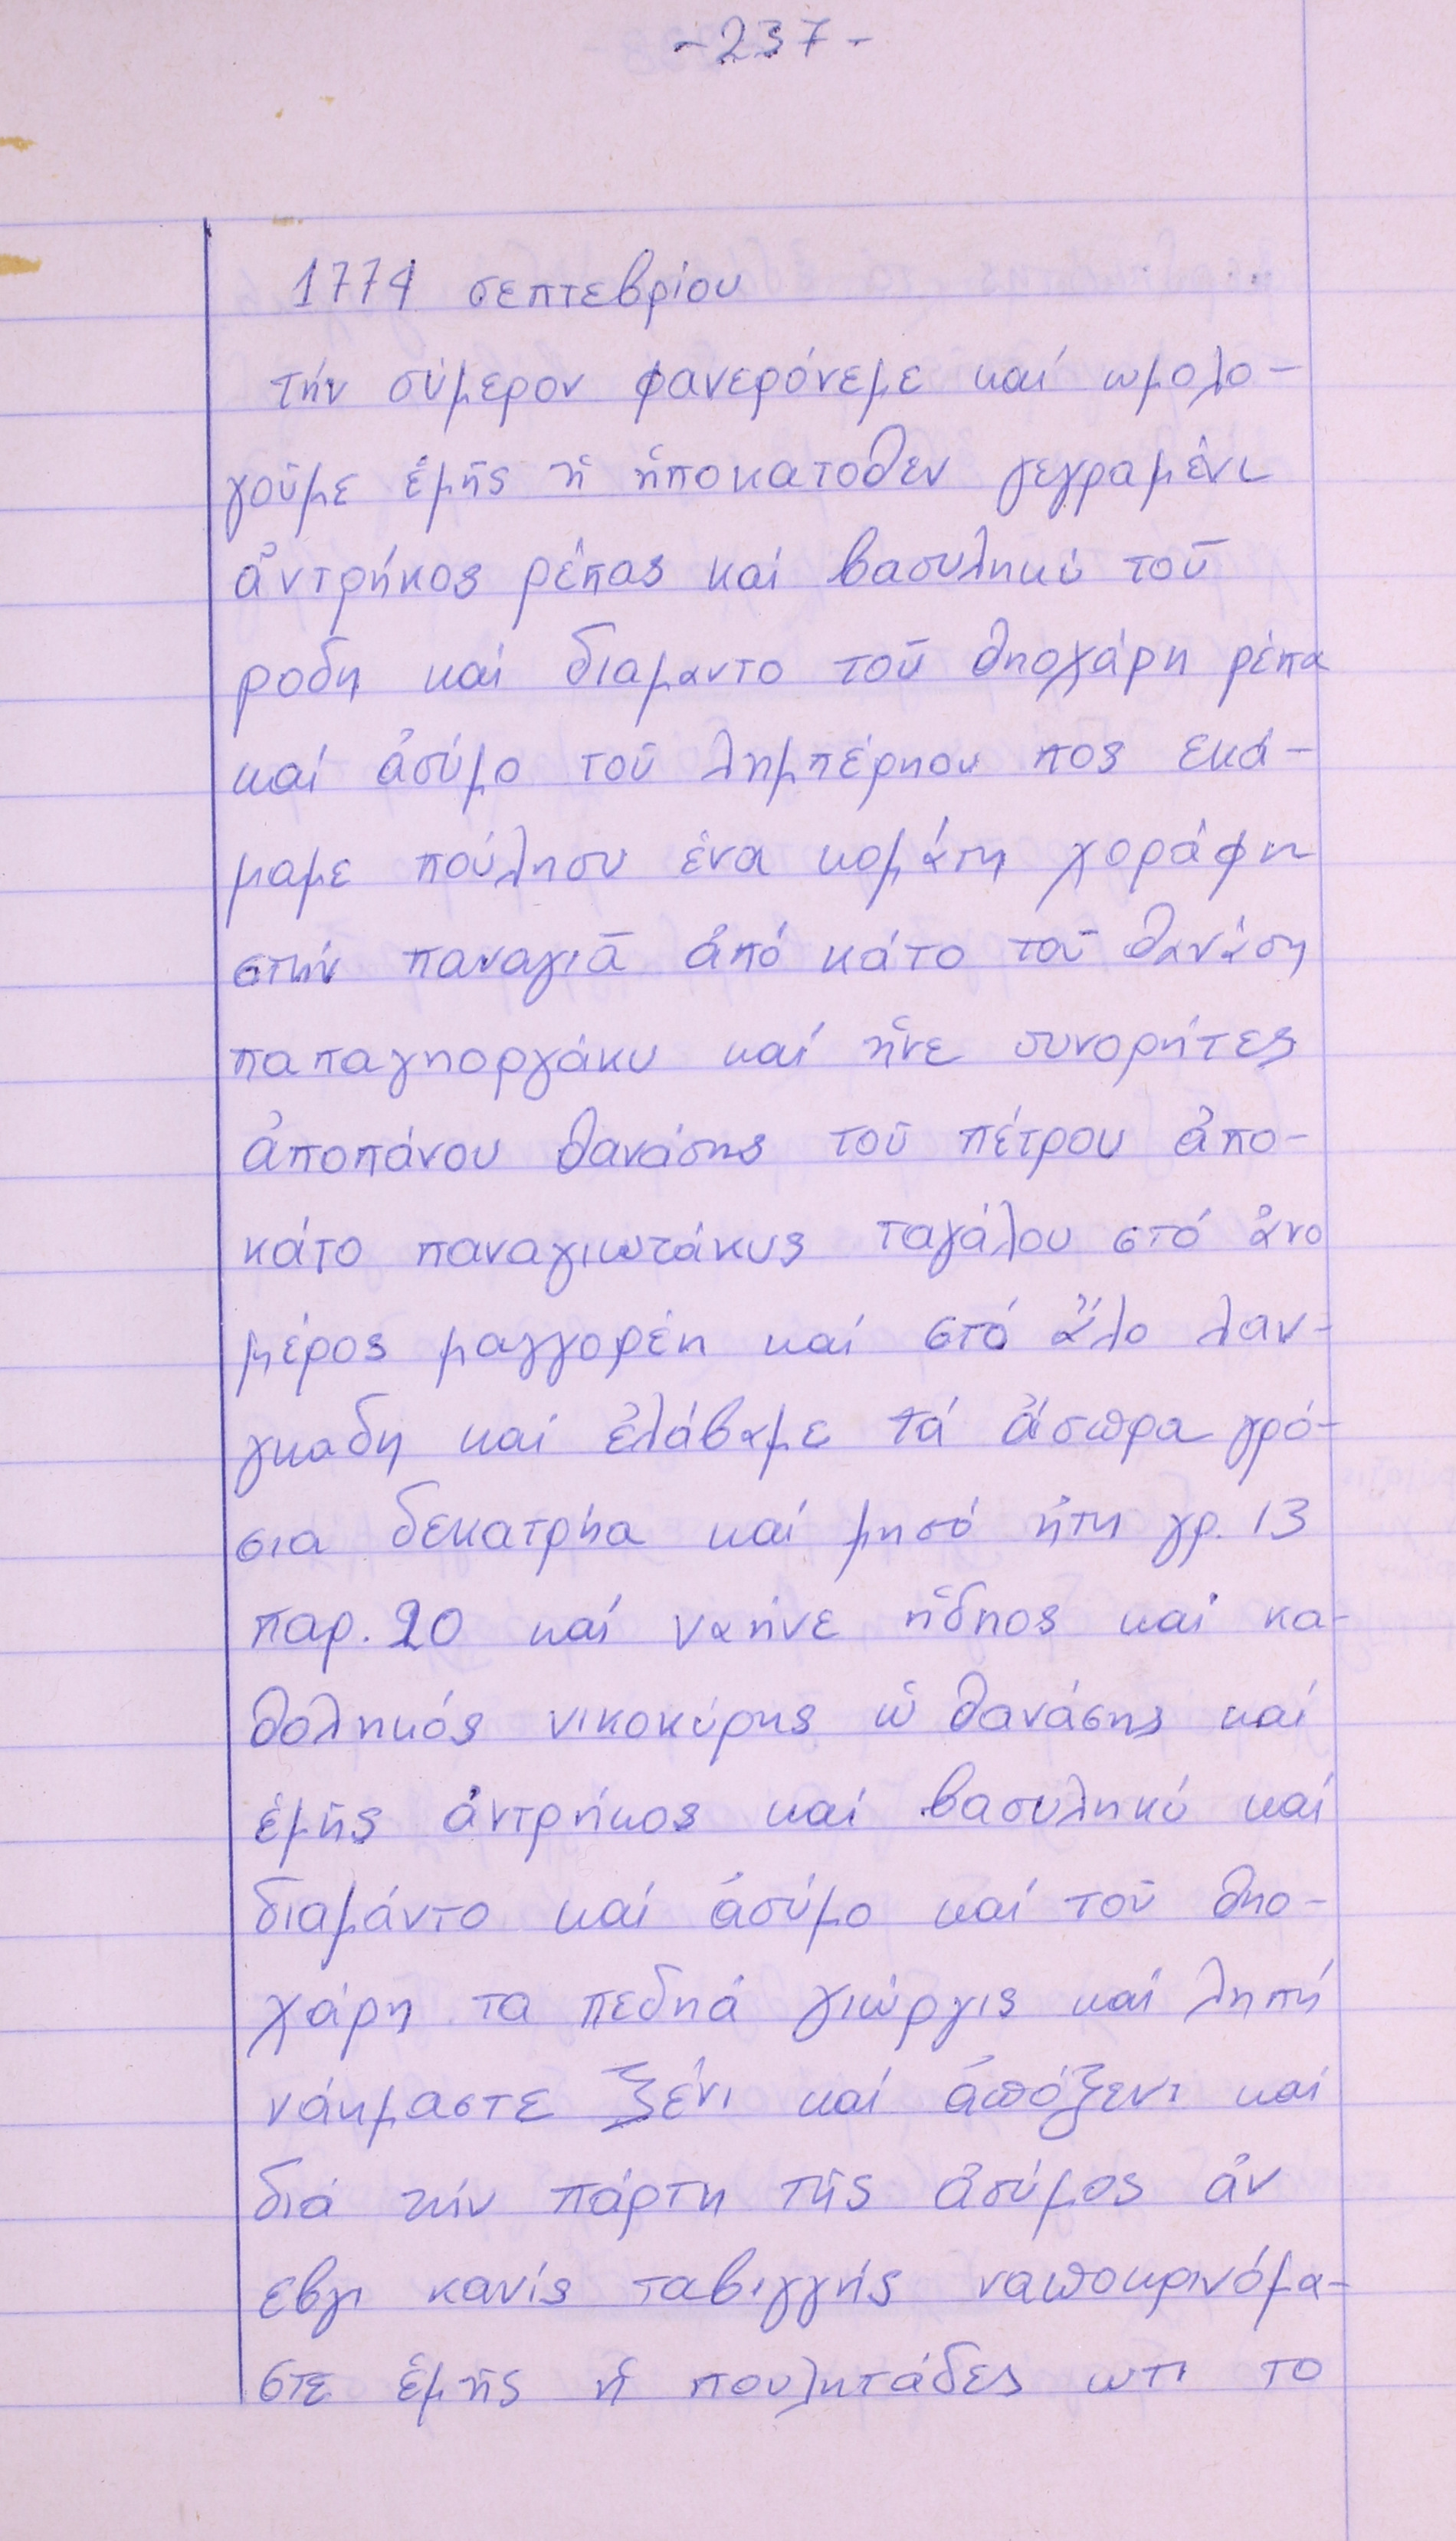 -237-
1774 σεπτεβρίου
τήν σύμερον φανερόνεμε καί ωμολο-
γοῦμε ἐμῆς ἡ ἡποκατοθεν γεγραμένι
ἀντρήκος ρέπας καί βασυληκύ τοῦ
ροδη καί διαμαντο τοῦ θηοχάρη ρέπα
καί ἀσύμο τοῦ λημπέρηου πος εκά-
μαμε πούλησυ ἑνα κομάτη χοράφη
στήν παναγιᾶ ἀπό κάτο τοῦ θανάση
παπαγηοργάκυ καί ἦνε συνορήτες
ἀποπάνου θανάσης τοῦ πέτρου ἀπο-
κάτο παναγιωτάκυς ταγάλου στό ἀνο
μέρος μαγγορέη καί στό ἄλο λαν-
γκαδη καί ἐλάβαμε τά ἄσπρα γρό-
σια δεκατρήα καί μησό ἤτη γρ. 13
παρ. 20 καί ναήνε ἤδηος καί κα-
θοληκός νικοκύρης ὡ θανάσης καί
ἐμῆς ἀντρήκος καί βασυληκύ καί
διαμάντο καί ἀσύμο καί τοῦ θηο-
χάρη τα πεδηά γιώργις καί ληπή
νάημαστε ξένι καί ἀπόξενι καί
διά τήν πάρτη τῆς ἀσύμος ἀν
εβγι κανίς ταβιγγής ναποκρινόμα-
στε ἐμῆς ἡ πουλητάδες ωτι το